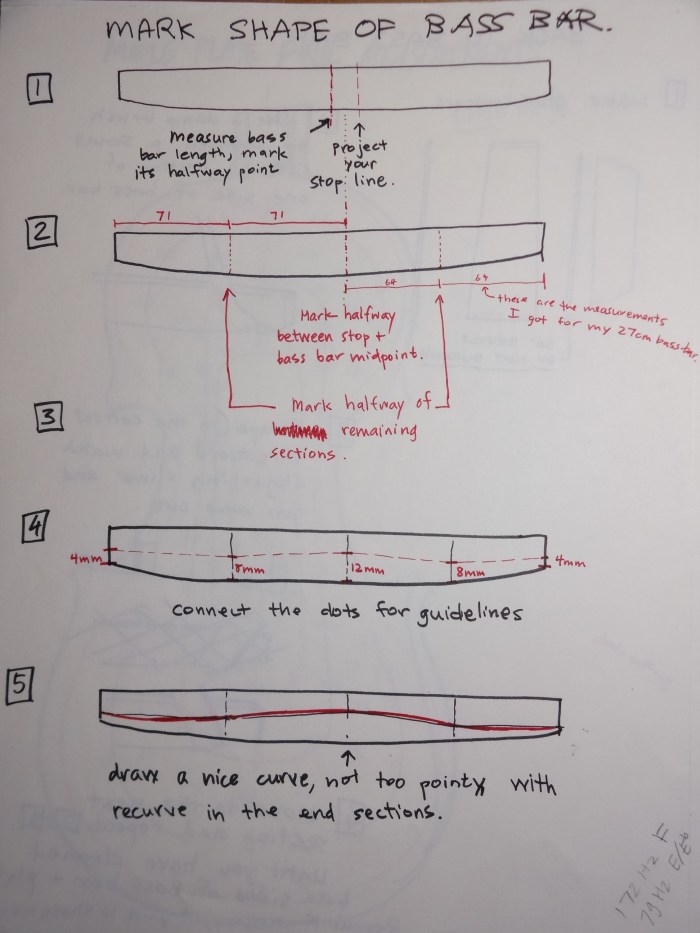 MARK SHAPE OF BASS BAR.
1
measure bass
bar length, mark
its halfway point
project
your
stop line.
2
71 71
64 64
these are the measurements
I got for my 27cm bassbar.
Mark halfway
between stop +
bass bar midpoint.
3
Mark halfway of
remaining
sections.
4
4mm 8mm 12mm 8mm 4mm
connect the dots for guidelines
5
draw a nice curve, not too pointy with
recurve in the end sections.
172 Hz F
79 Hz E/Eb